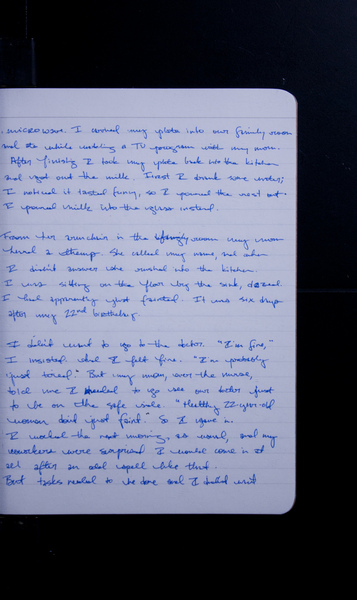 microwave. I carried my plate into our family room
and ate while watching a TV program with my mom.
After finishing I took my plate back into the kitchen
and got out the milk. First I drank some water;
I noticed it tasted funny, so I poured the rest out.
I poured milk into the glass instead.
From her armchair in the family room my mom
heard a thump. She called my name, and when
I didn't answer she rushed into the kitchen.
I was sitting on the floor by the sink, dazed.
I had apparently just fainted. It was six days
after my 22nd birthday.
I didn't want to go to the doctor. "I'm fine,"
I insisted. And I felt fine. "I'm probably
just tired." But my mom, ever the nurse,
told me I needed to go see our doctor just
to be on the safe side. "Healthy 22-year-old
women don't just faint." So I gave in.
I worked the next morning, as usual, and my
coworkers were surprised I would come in at
all after an odd spell like that.
But tasks needed to be done and I didn't want